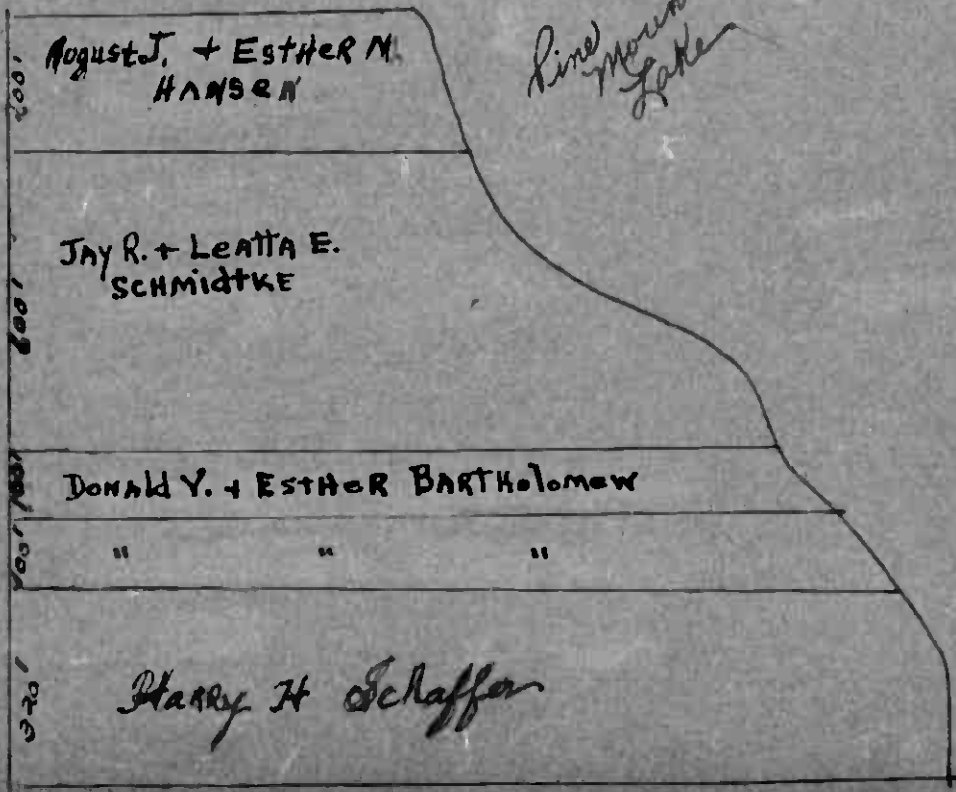 August J. + EstHeR M.
HANSeN
200'
Pine
Moun
Lake
JAy R. + LeATTA E.
SCHMidtKE
DoNAld V. + EstHeR BARTHolomew
100'
" " "
100'
HaRRy H Schaffer
320'